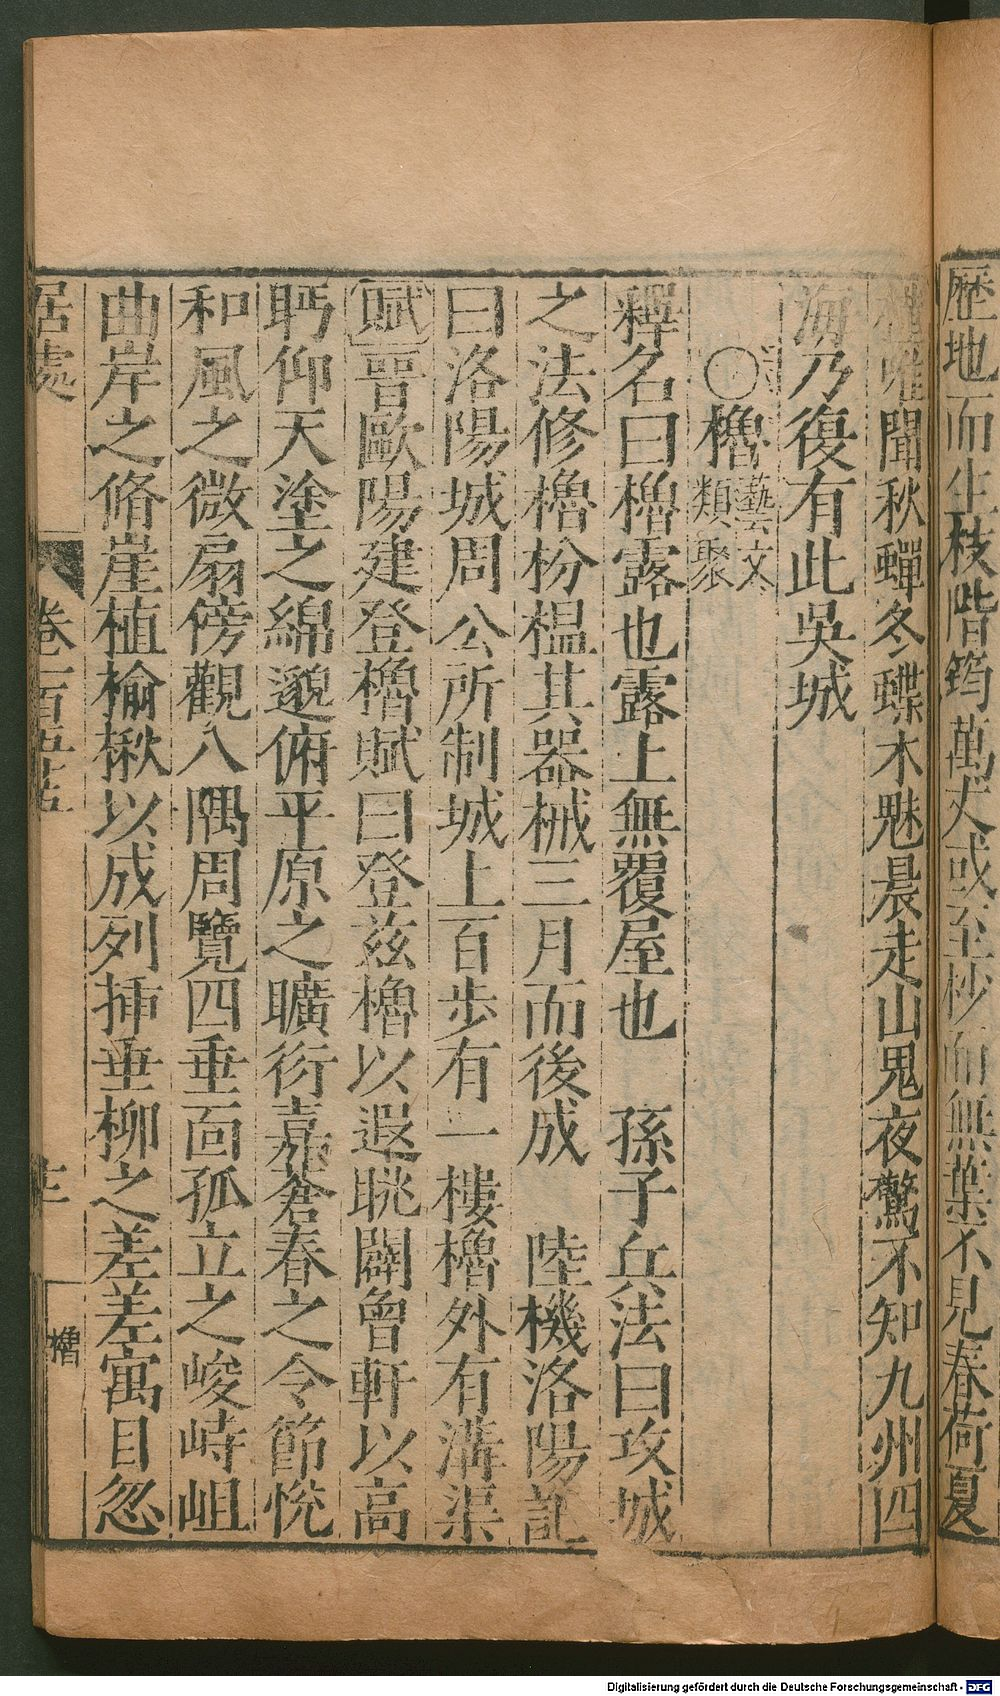 歷地而生枝階筠萬丈或至杪而無葉不見春荷夏
唯聞秋蟬冬蠂木魅晨走山鬼夜驚不知九州四
海乃復有此吳城
○櫓藝文類聚
釋名曰櫓露也露上無覆屋也　孫子兵法曰攻城
之法修櫓枌榅其器械三月而後成　陸機洛陽記
曰洛陽城周公所制城上百步有一樓櫓外有溝渠
賦晉歐陽建登櫓賦曰登茲櫓以遐眺闢曾軒以高
眄仰天塗之綿邈俯平原之曠衍嘉蒼春之令節悅
和風之微扇傍觀八隅周覽四垂面孤立之峻峙岨
曲岸之脩崖植榆楸以成列插垂柳之差差寓目忽
居處　卷一百　櫓
Digitalisierung gefördert durch die Deutsche Forschungsgemeinschaft - DFG